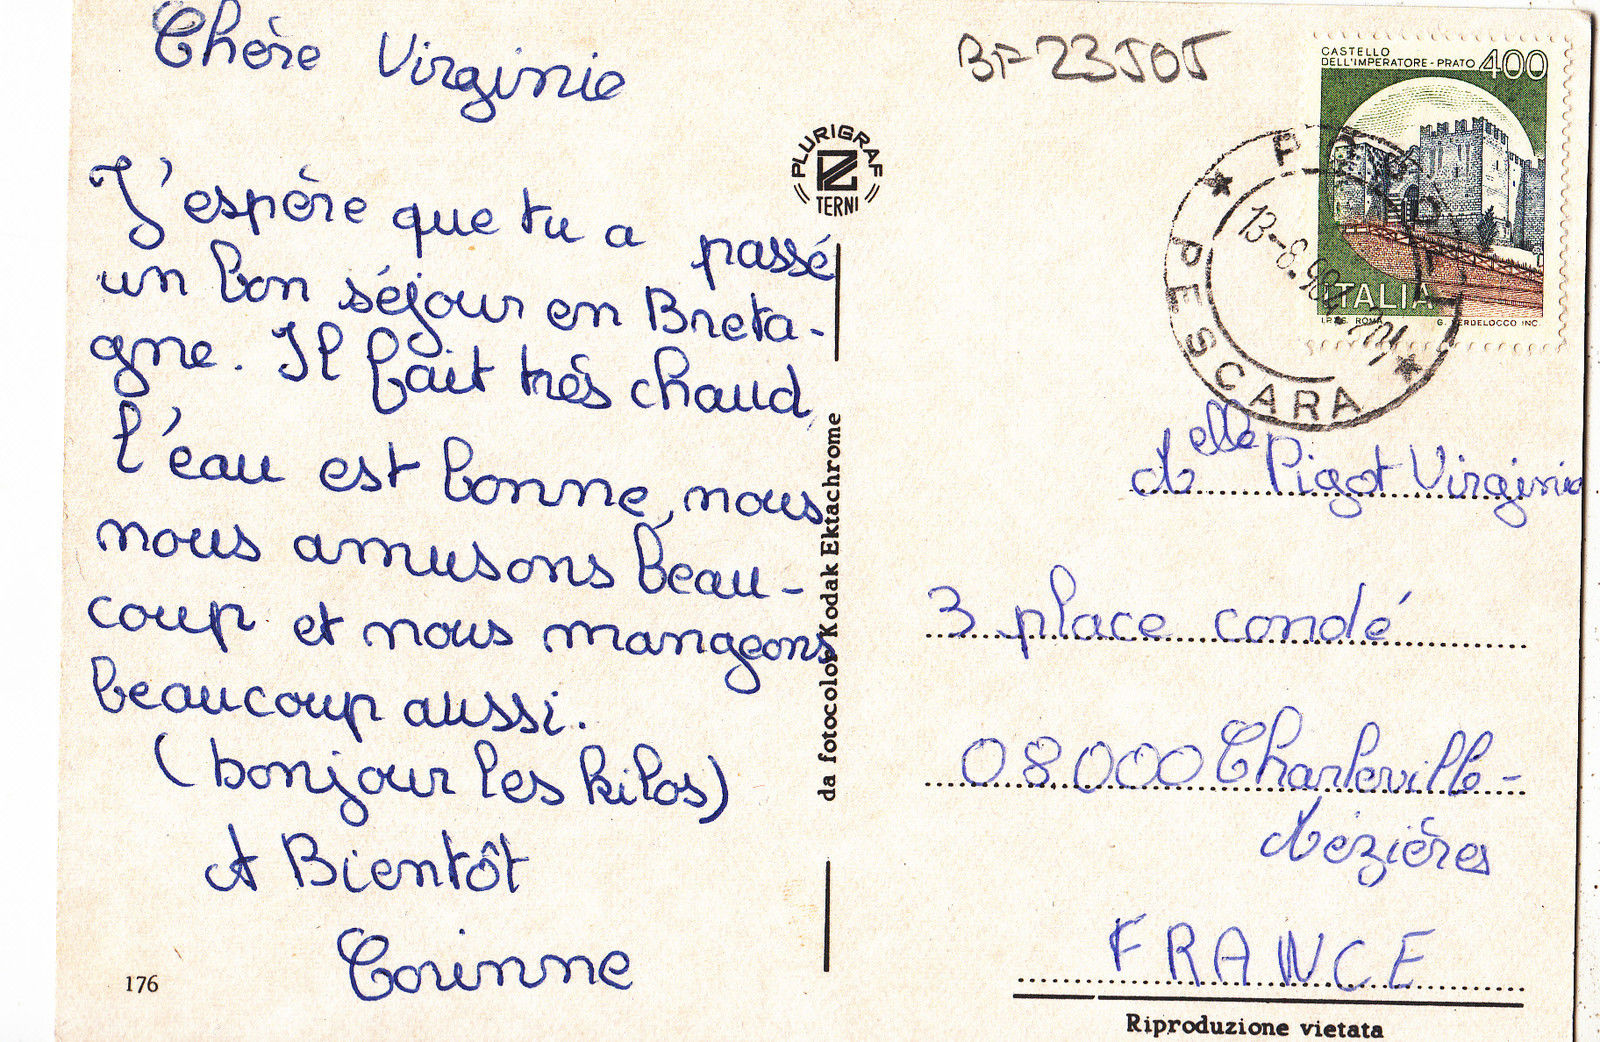 Chère Virginie
J'espère que tu a passé
un bon séjour en Breta-
gne. Il fait très chaud,
l'eau est bonne, nous
nous amusons beau-
coup et nous mangeons
beaucoup aussi.
(bonjour les kilos)
A Bientôt
Corinne
176
PLURIGRAF
TERNI
da fotocolor Kodak Ektachrome
BF 23505
CASTELLO
DELL'IMPERATORE - PRATO 400
ITALIA
I.P.Z.S. ROMA G. VERDELOCCO INC.
PESCARA
13-8.90
Melle Pigot Virginie
3 place condé
08000 Charleville-
Mézières
FRANCE
Riproduzione vietata